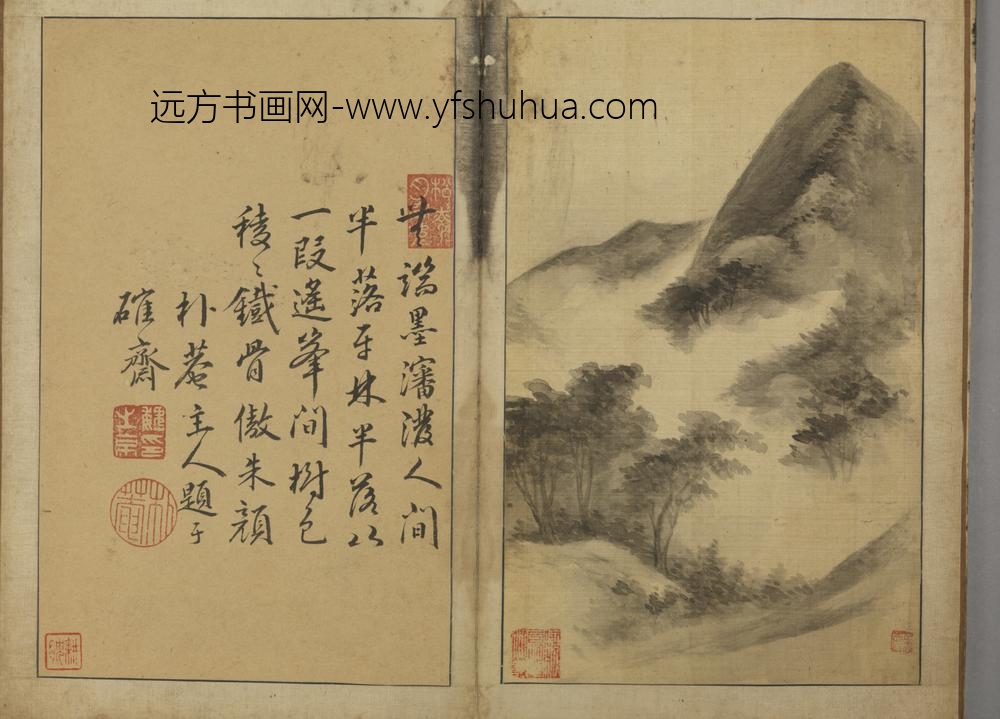 远方书画网-www.yfshuhua.com
無端墨瀋潑人間
半落平林半落山
一段遙峯間樹色
稜〻鐵骨傲朱顏
朴菴主人題于
確齋
朴菴